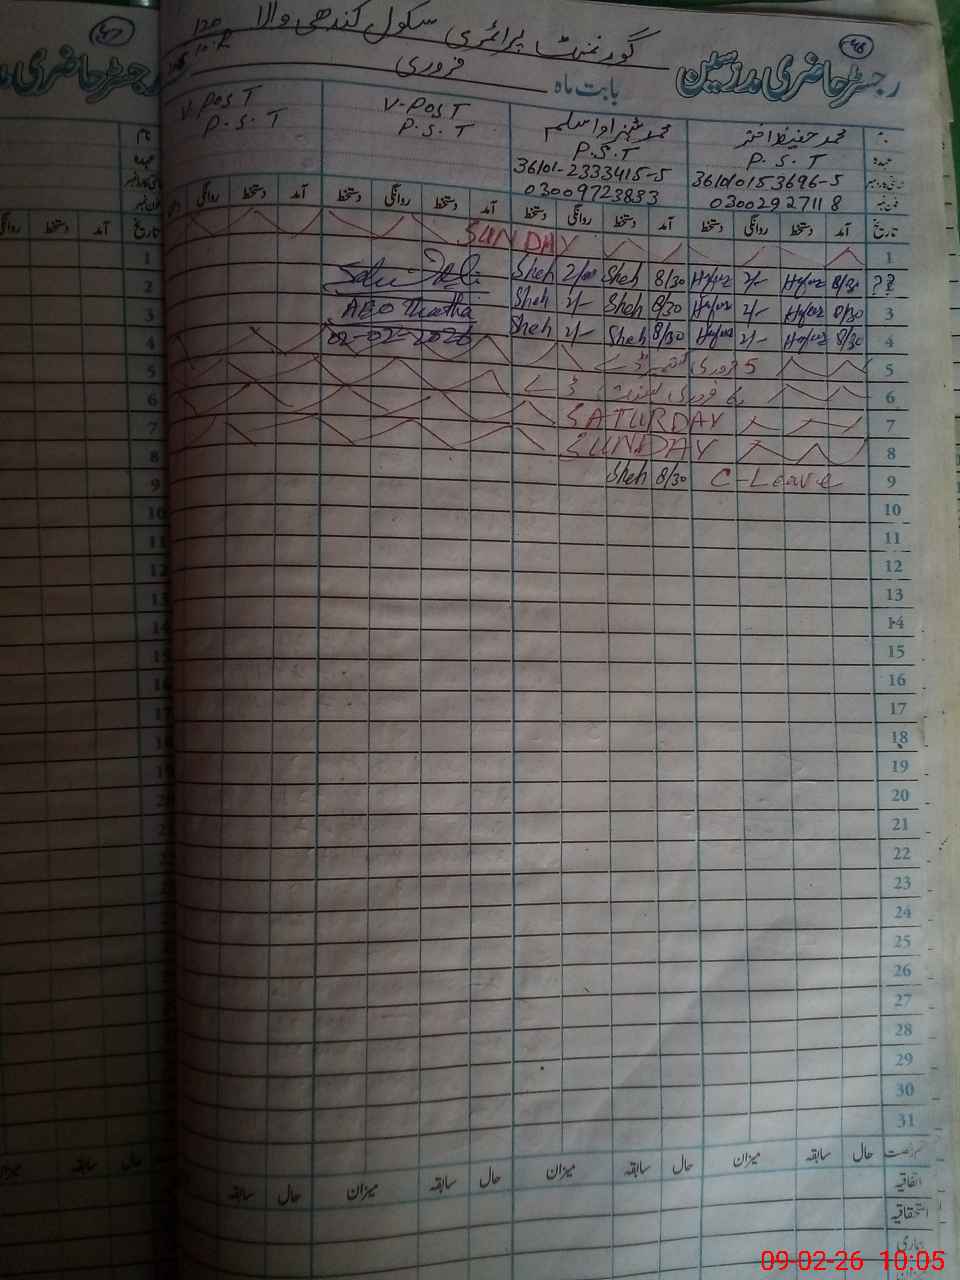 ۴۶
رجسٹر حاضری مدرسین گورنمنٹ پرائمری سکول کندھی والا 120
بابت ماہ فروری
نام محمد حفیظ اختر محمد شہزاد اسلم V-POST V-POST
عہدہ P.S.T P.S.T P.S.T P.S.T
361010153696-5 36101-2333415-5
فون نمبر 03002927118 03009723883
تاریخ آمد دستخط روانگی دستخط آمد دستخط روانگی دستخط آمد دستخط روانگی دستخط آمد دستخط روانگی
1 SUNDAY
2 8/30 Hafeez 2/- Hafeez 8/30 Sheh 2/00 Sheh
3 8/30 Hafeez 2/- Hafeez 8/30 Sheh 2/- Sheh AEO
4 8/30 Hafeez 2/- Hafeez 8/30 Sheh 2/- Sheh 02-02-2026
5 5 فروری کشمیر ڈے
6 فروری بسنت ڈے
7 SATURDAY
8 SUNDAY
9 C-Leave 8/30 Sheh
10
11
12
13
14
15
16
17
18
19
20
21
22
23
24
25
26
27
28
29
30
31
رخصت حال سابقہ میزان حال سابقہ میزان حال سابقہ میزان حال سابقہ
اتفاقیہ
استحقاقیہ
بیماری
09-02-26 10:05